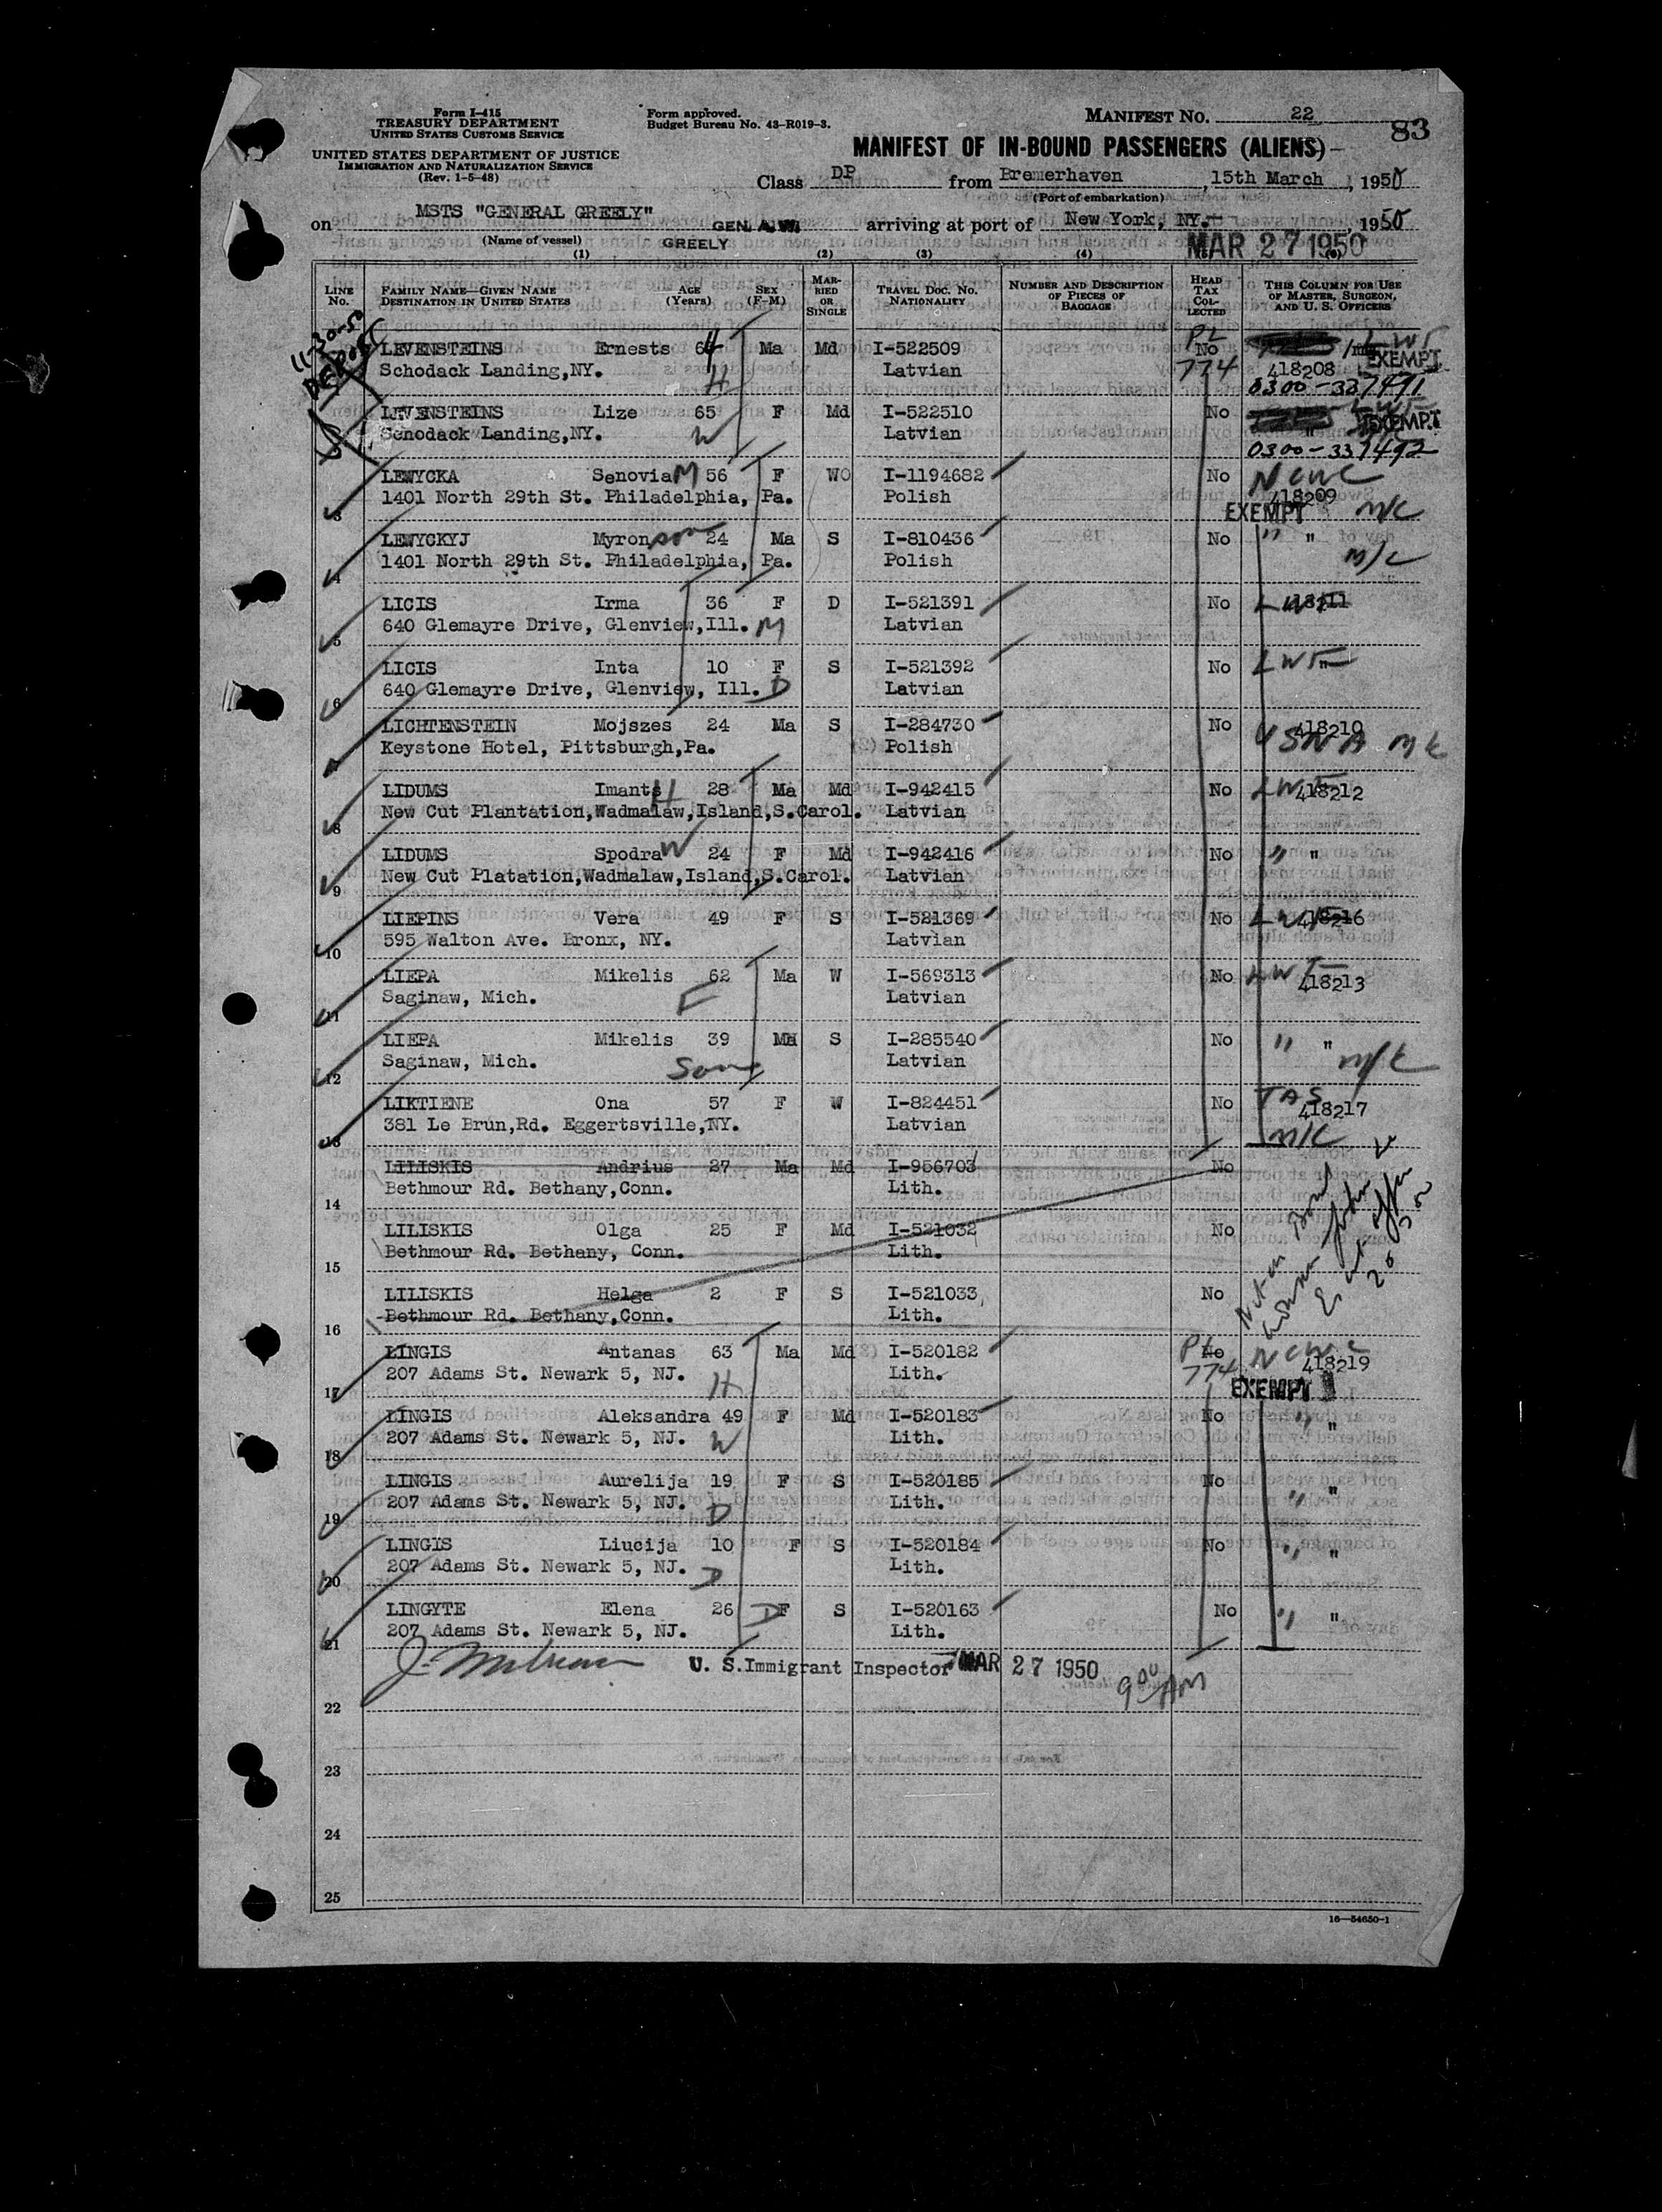 Form I-415
TREASURY DEPARTMENT
UNITED STATES CUSTOMS SERVICE
UNITED STATES DEPARTMENT OF JUSTICE
IMMIGRATION AND NATURALIZATION SERVICE
(Rev. 1-5-48)
Form approved.
Budget Bureau No. 43-R019-3.
MANIFEST NO. 22
83
MANIFEST OF IN-BOUND PASSENGERS (ALIENS)
Class DP from Bremerhaven, 15th March, 1950
(Port of embarkation)
on MSTS "GENERAL GREELY" GEN. A.W. GREELY arriving at port of New York, NY. , 1950
(Name of vessel)
MAR 27 1950
(1) (2) (3) (4)
LINE No. FAMILY NAME—GIVEN NAME DESTINATION IN UNITED STATES AGE (Years) SEX (F-M) MARRIED OR SINGLE TRAVEL DOC. NO. NATIONALITY NUMBER AND DESCRIPTION OF PIECES OF BAGGAGE HEAD TAX COLLECTED THIS COLUMN FOR USE OF MASTER, SURGEON, AND U. S. OFFICERS
11-30-50
LEVENSTEINS Ernests 64 Ma Md I-522509 PL No LWF EXEMPT
Schodack Landing,NY. H Latvian 774 418208
0300-337491
LEVENSTEINS Lize 65 F Md I-522510 No LWF EXEMPT
Schodack Landing,NY. W Latvian "
0300-337492
LEWYCKA Senovia M 56 F WO I-1194682 No NCWC
1401 North 29th St. Philadelphia, Pa. Polish 418209 EXEMPT M/C
3
LEWYCKYJ Myron son 24 Ma S I-810436 No " "
1401 North 29th St. Philadelphia, Pa. Polish M/C
4
LICIS Irma 36 F D I-521391 No LWF
640 Glemayre Drive, Glenview,Ill. M Latvian
5
LICIS Inta 10 F S I-521392 No LWF "
640 Glemayre Drive, Glenview, Ill. D Latvian
6
LICHTENSTEIN Mojszes 24 Ma S I-284730 No 418210
Keystone Hotel, Pittsburgh,Pa. Polish USNA
LIDUMS Imants H 28 Ma Md I-942415 No LWF 418212
New Cut Plantation,Wadmalaw,Island,S.Carol. Latvian
8
LIDUMS Spodra W 24 F Md I-942416 No " "
New Cut Platation,Wadmalaw,Island,S.Carol. Latvian
9
LIEPINS Vera 49 F S I-521369 No LWF 418216
595 Walton Ave. Bronx, NY. Latvian
10
LIEPA Mikelis 62 Ma W I-569313 No LWF 418213
Saginaw, Mich. F Latvian
11
LIEPA Mikelis 39 Ma S I-285540 No " "
Saginaw, Mich. Son Latvian
12
LIKTIENE Ona 57 F W I-824451 No 418217
381 Le Brun,Rd. Eggertsville,NY. Latvian M/C
13
LILISKIS Andrius 27 Ma Md I-956703 No
Bethmour Rd. Bethany,Conn. Lith.
14
LILISKIS Olga 25 F Md I-521032 No
Bethmour Rd. Bethany, Conn. Lith.
15
LILISKIS Helga 2 F S I-521033 No
Bethmour Rd. Bethany,Conn. Lith.
16
LINGIS Antanas 63 Ma Md I-520182 PL No NCWC 418219
207 Adams St. Newark 5, NJ. H Lith. 774 EXEMPT
17
LINGIS Aleksandra 49 F Md I-520183 No " "
207 Adams St. Newark 5, NJ. W Lith.
18
LINGIS Aurelija 19 F S I-520185 No " "
207 Adams St. Newark 5, NJ. D Lith.
19
LINGIS Liucija 10 F S I-520184 No " "
207 Adams St. Newark 5, NJ. D Lith.
20
LINGYTE Elena 26 D F S I-520163 No " "
207 Adams St. Newark 5, NJ. Lith.
21
U. S.Immigrant Inspector MAR 27 1950
9 00 AM
22
23
24
25
16—54650-1